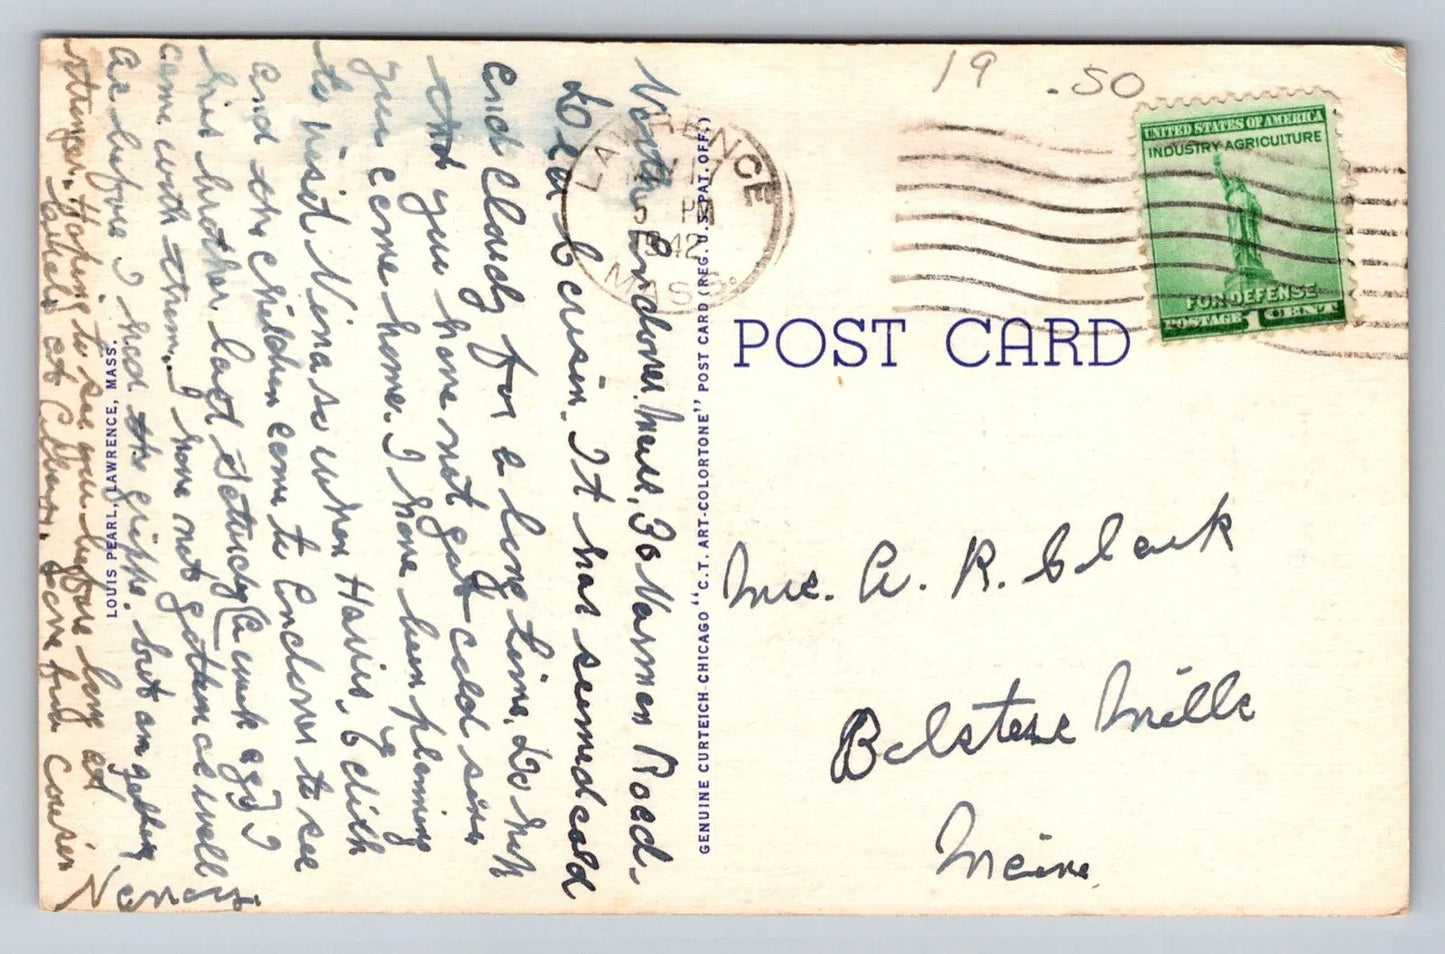 19 .50
UNITED STATES OF AMERICA
INDUSTRY AGRICULTURE
FOR DEFENSE
POSTAGE 1 CENT
LAWRENCE
17
5 PM
1942
MASS.
POST CARD
Mrs. A. R. Clark
Belgrade Mills
Maine
GENUINE CURTEICH-CHICAGO "C.T. ART-COLORTONE" POST CARD (REG. U.S. PAT. OFF.)
LOUIS PEARL, LAWRENCE, MASS.
North Andover. Mass, 30 Road-
Dear Cousin. It has seemed cold
and cloudy for a long time. Do hope
that you have not got cold since
you came home. I have been planning
to visit Nina so when Harris, Edith
and the children came to Andover to see
his brother last Saturday (a week ago) I
came with them. I have not gotten as well
as before I had the grippe. but am getting
stronger. Hoping to see you before long at
Love from Cousin